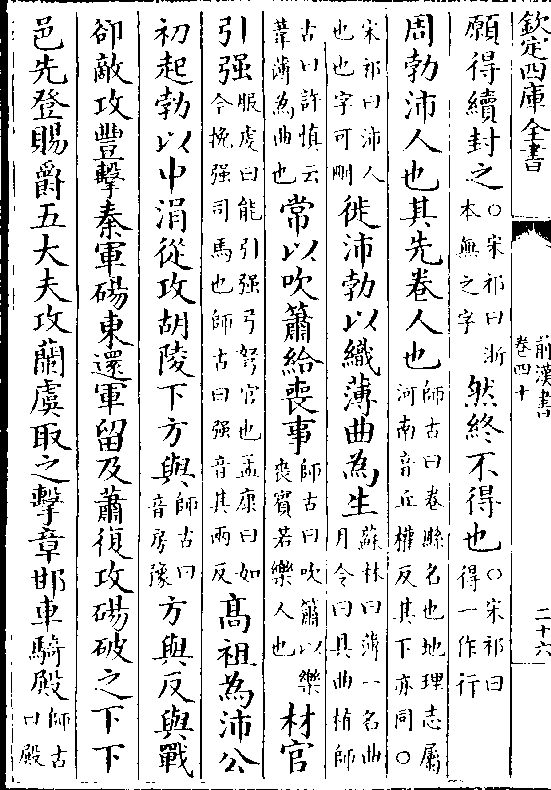 欽定四庫全書
前漢書
卷四十
二十六
願得續封之〇宋祁曰浙本無之字然終不得也〇宋祁曰得一作行
周勃沛人也其先卷人也師古曰卷縣名也地理志屬河南音丘權反其下亦同〇
宋祁曰沛人也也字可刪徙沛勃以織薄曲為生蘇林曰薄一名曲月令曰具曲植師
古曰許慎云葦薄為曲也常以吹簫給喪事師古曰吹簫以樂喪賓若樂人也材官
引强服虔曰能引强弓弩官也孟康曰如今挽强司馬也師古曰强音其兩反髙祖為沛公
初起勃以中涓從攻胡陵下方與師古曰音房豫方與反與戰
卻敵攻豐擊秦軍碭東還軍留及蕭復攻碭破之下下
邑先登賜爵五大夫攻蘭虞取之擊章邯車騎殿師古曰殿